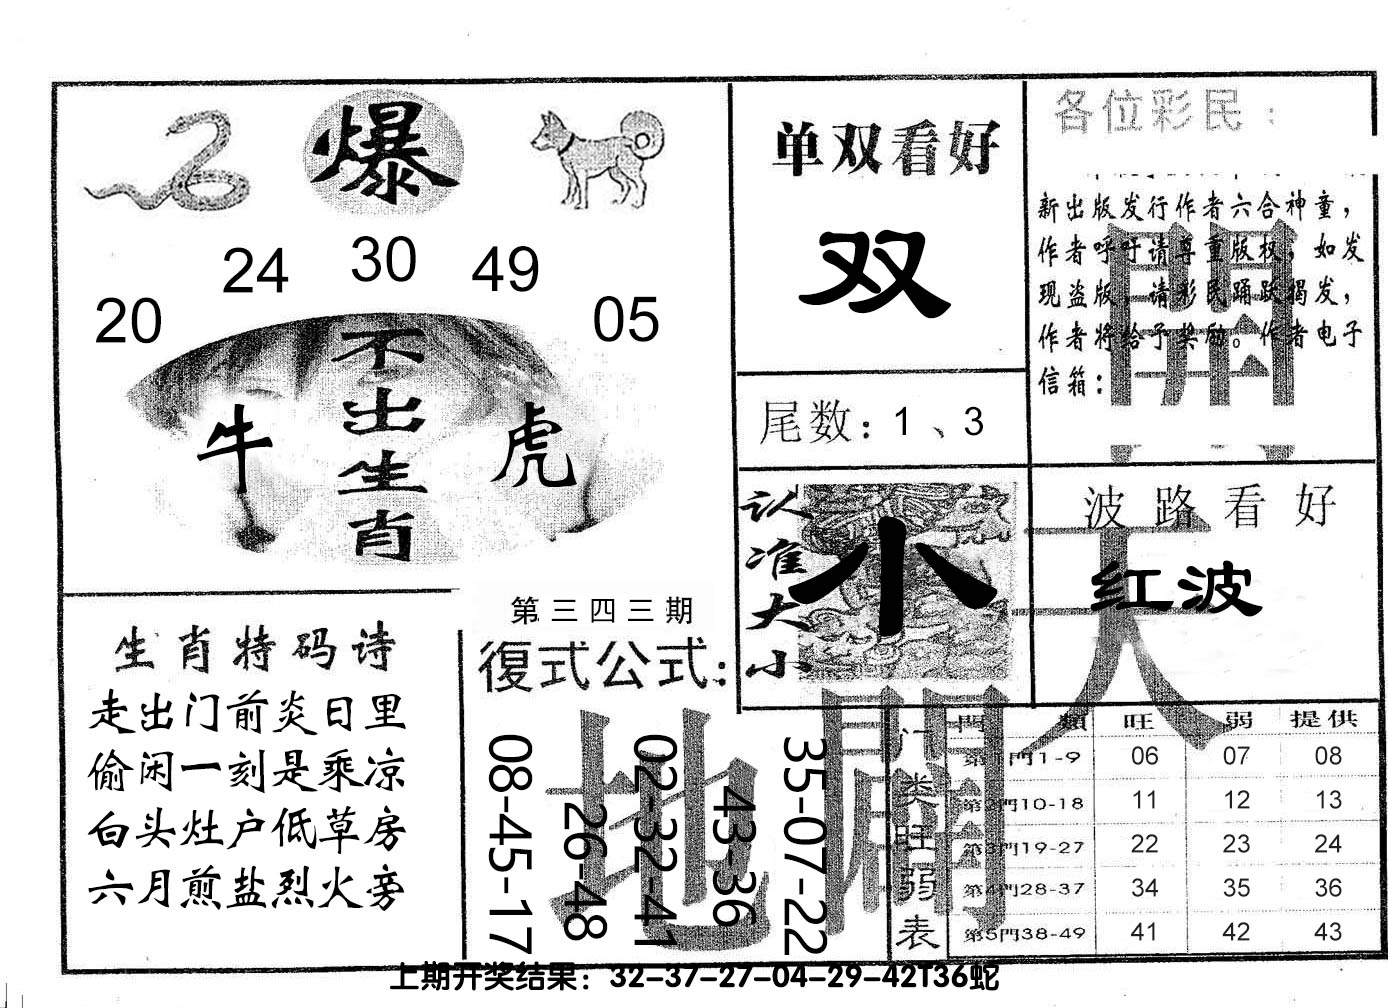 爆
20 24 30 49 05
不出生肖
牛 虎
生肖特码诗
走出门前炎日里
偷闲一刻是乘凉
白头灶户低草房
六月煎盐烈火旁
第三四三期
復式公式：
08-45-17
26-48
02-32-41
43-36
35-07-22
单双看好
双
尾数：1、3
认准大小
小
各位彩民：
新出版发行作者六合神童，
作者呼吁请尊重版权，如发
现盗版，请彩民踊跃揭发，
作者将给予奖励。作者电子
信箱：
波路看好
红波
天
地
開
門类旺弱表
門類 旺 弱 提供
第1門1-9 06 07 08
第2門10-18 11 12 13
第3門19-27 22 23 24
第4門28-37 34 35 36
第5門38-49 41 42 43
上期开奖结果：32-37-27-04-29-42T36蛇